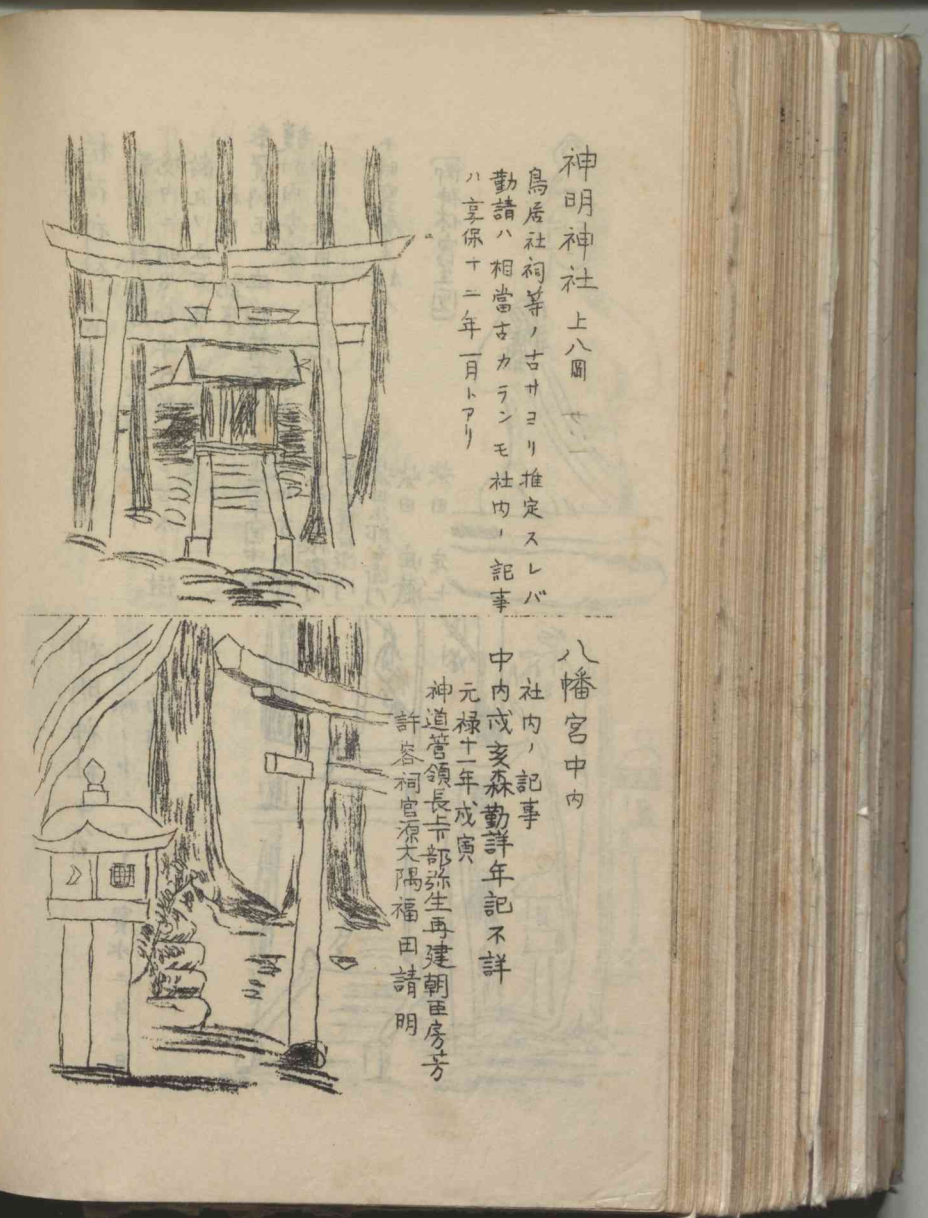 神明神社 上八圖
鳥居社祠等ノ古サヨリ推定スレバ
勸請ハ相當古カランモ社内ノ記事
ハ享保十二年一月トアリ
八幡宮中内
社内ノ記事
中内戌亥森勸詳年記不詳
元禄十一年戍寅
神道管領長上卜部弥生再建朝臣房芳
許容祠官源大隅福田請明